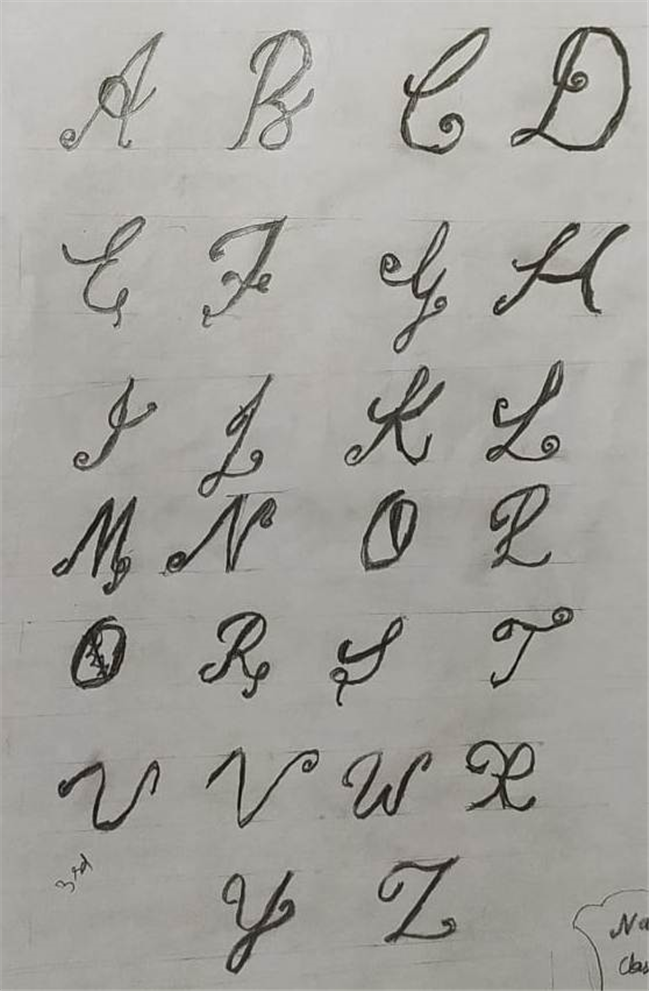 A B C D
E F G H
I J K L
M N O P
Q R S T
U V W X
3rd
Y Z
Na
Clas